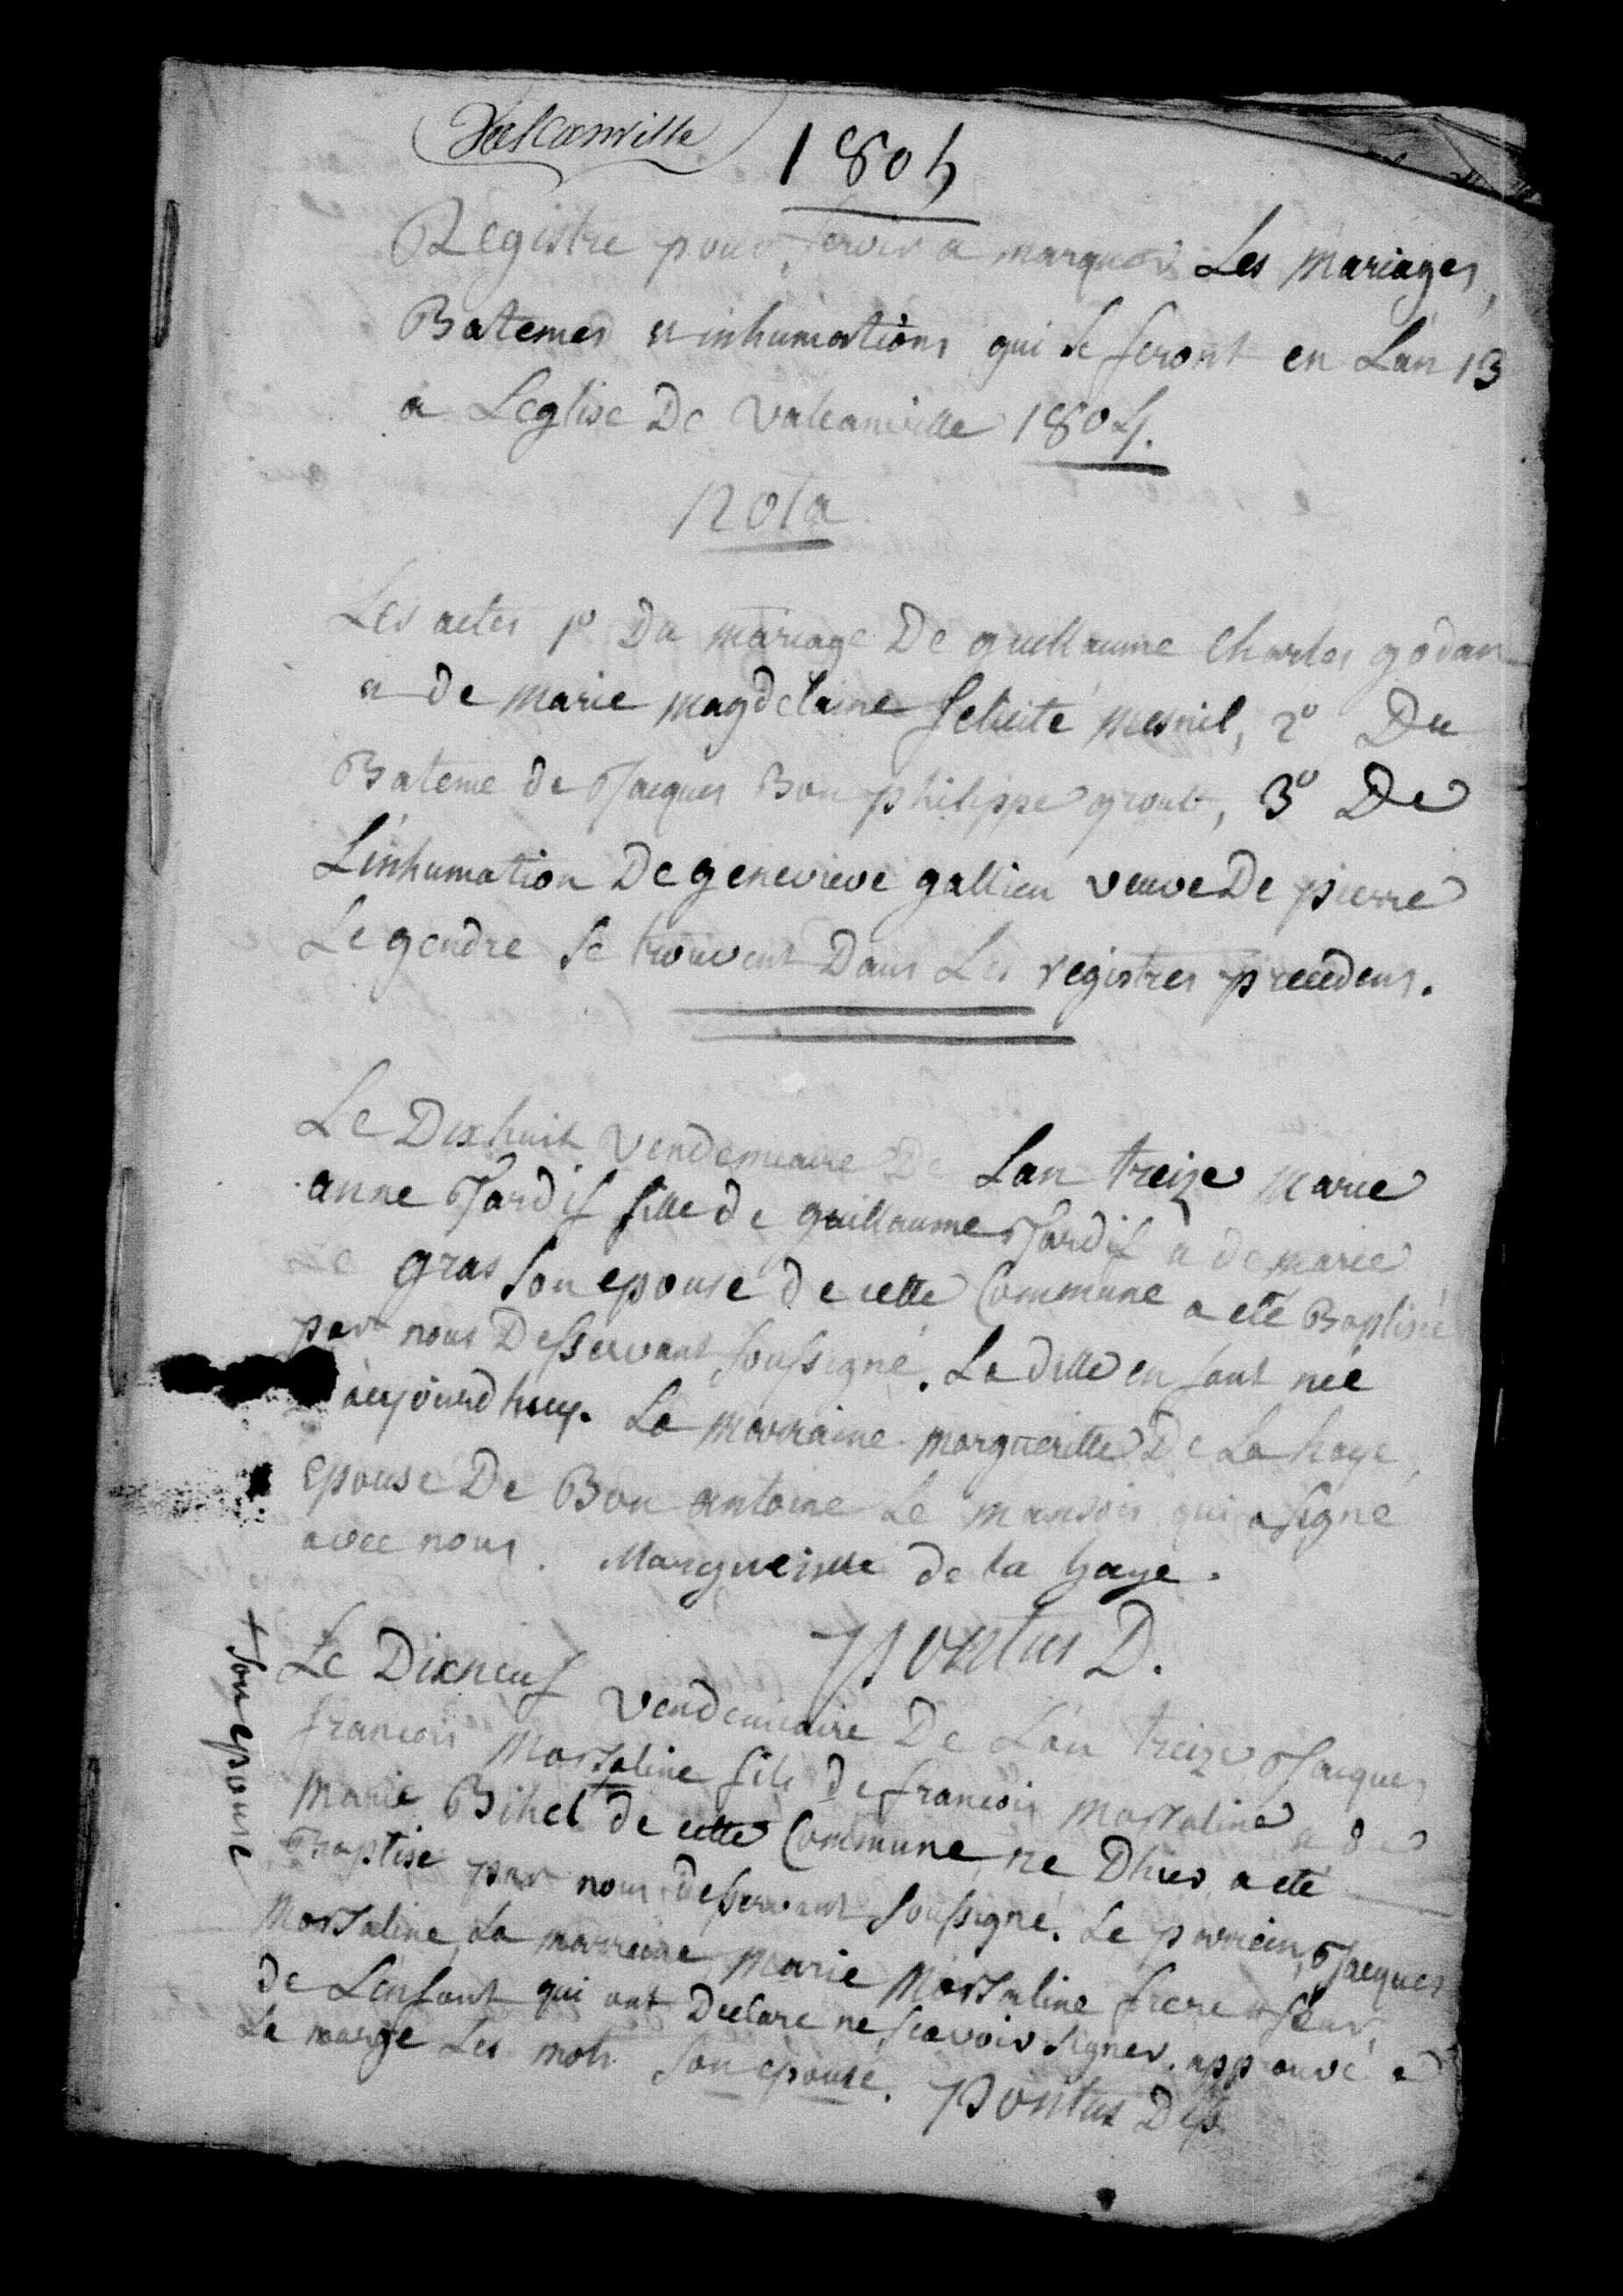 Valcanville
1804
Registre pour servir a marquer Les mariages,
Batemes et inhumations qui se feront en Lan 13
a Leglise De valcanville 1804.
Nota
Les actes 1º Du mariage De guillaume Charles godan
et de marie magdelaine felicité mesnil, 2º Du
Bateme de Jacques Bon philippe groult, 3º De
Linhumation De genevieve gallien veuve De pierre
Le gendre se trouvent Dans Les registres precedens.
Le Dixhuit vendemiaire De Lan treize marie
anne Tardif fille de guillaume Tardif et de marie
Le gras son epouse de cette Commune a eté Baptisée
par nous Desservant soussigné. La ditte enfant née
aujourdhuy. La marraine margueritte De La haye,
epouse De Bon antoine Le mansois qui a signé
avec nous. Margueritte de la haye.
Pontus D.
Le Dixneuf vendemiaire De Lan treize Jacques
francois Morsaline fils de francois morsaline et de
Marie Bihel de cette Commune, né Dhier a eté
Baptisé par nous desservant soussigné. Le parrein, Jacques
Morsaline, La marreine marie Morsaline frere et seur,
de Lenfant qui ont Declare ne scavoir signer. approuvé a
La marge Les mots son epouse. Pontus Dess
+ son epouse